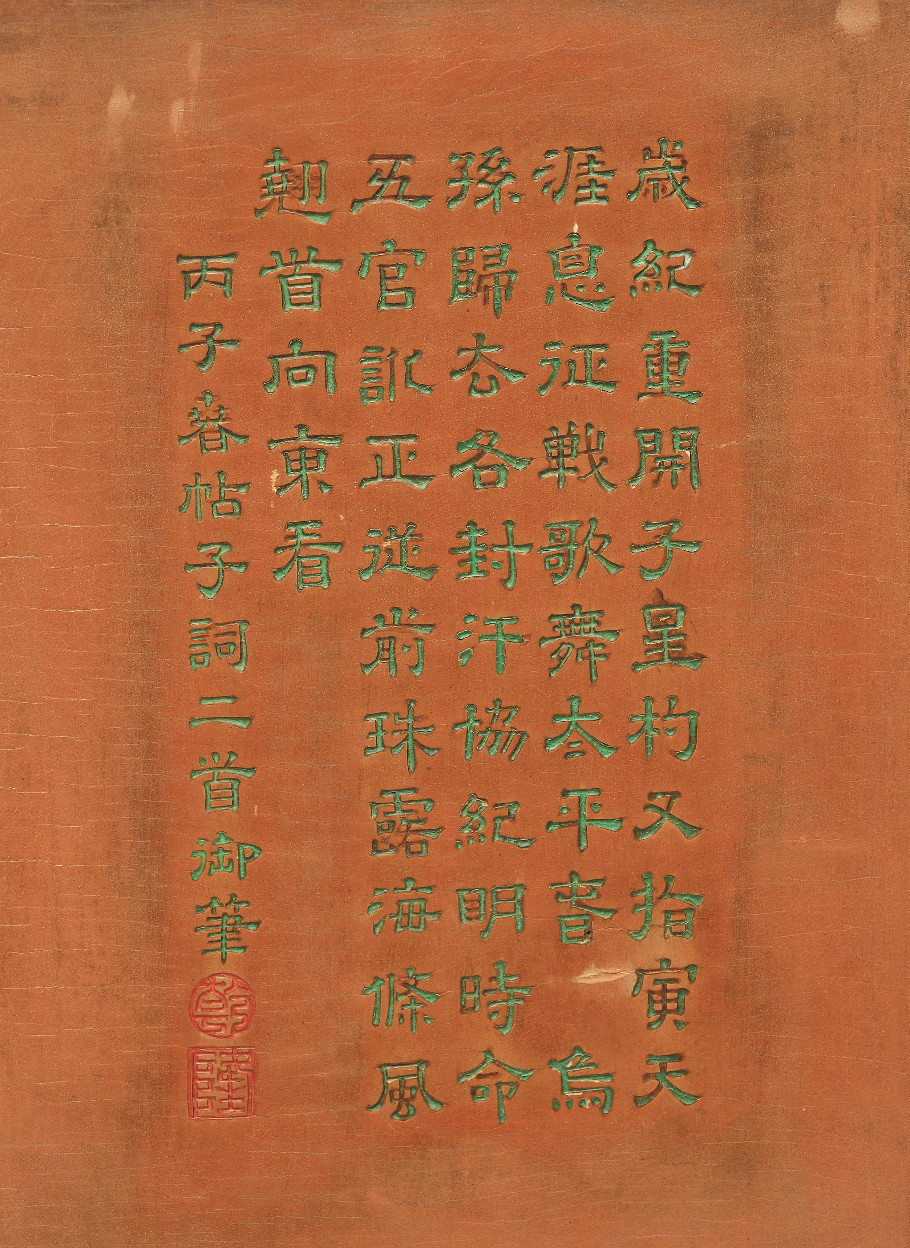 歲紀重開子星杓又指寅天
涯息征戰歌舞太平春　烏
孫歸去各封汗協紀明時命
五官訛正從前珠露海條風
翹首向東看
丙子春帖子詞二首御筆
乾
隆